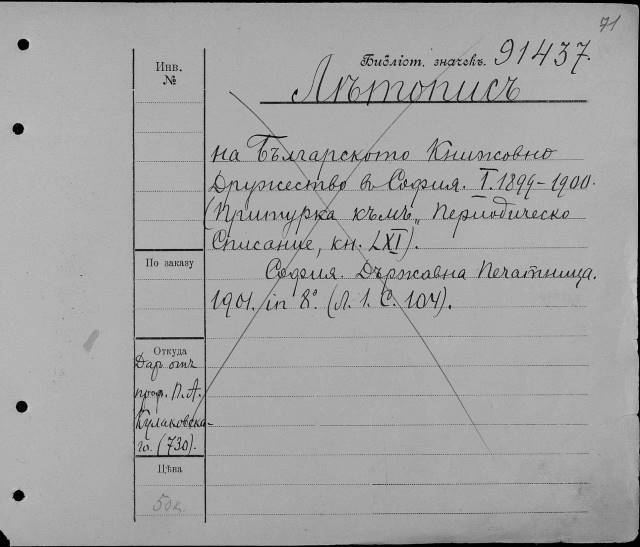 71
Библіот. значекъ. 91437.
Лѣтописъ
Инв.
№
на Българското Книжовно
Дружество въ София. I. 1899-1900.
(Притурка къмъ „Периодическо
Списание, кн. LXI).
По заказу
София. Държавна Печатница.
1901. in 8°. (Л. 1. С. 104).
Откуда
Даръ отъ
проф. П. А.
Кулаковска-
го. (730).
Цѣна
50к.